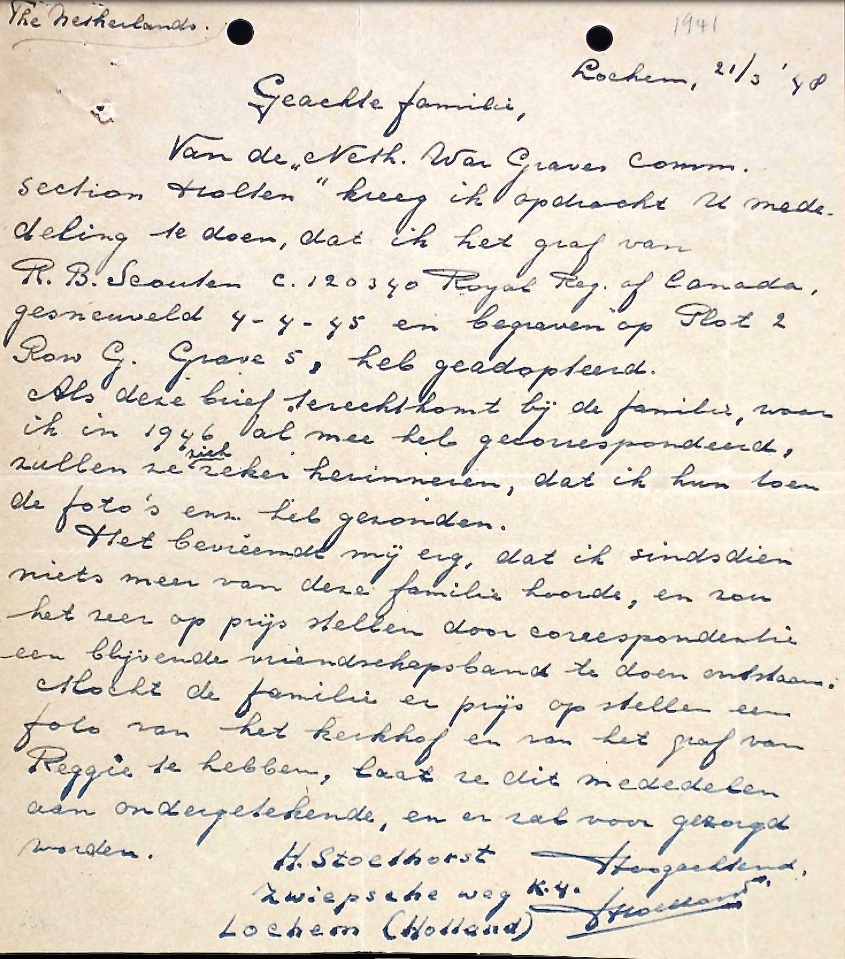 The Netherlands.
1941
Lochem, 21/3 '48
Geachte familie,
Van de „Neth. War Graves Comm.
section Holten" kreeg ik opdracht U mede-
deling te doen, dat ik het graf van
R. B. Scouten C. 120340 Royal Reg. of Canada,
gesneuveld 4-4-45 en begraven op Plot 2
Row G. Grave 5, heb geadopteerd.
Als deze brief terechtkomt bij de familie, waar
ik in 1946 al mee heb gecorrespondeerd,
zullen ze zich zeker herinneren, dat ik hun toen
de foto's enz. heb gezonden.
Het bevreemdt mij erg, dat ik sindsdien
niets meer van deze familie hoorde, en zou
het zeer op prijs stellen door correspondentie
een blijvende vriendschapsband te doen ontstaan.
Mocht de familie er prijs op stellen een
foto van het kerkhof en van het graf van
Reggie te hebben, laat ze dit mededelen
aan ondergetekende, en er zal voor gezorgd
worden.
Hoogachtend,
H. Stoelhorst
Zwiepsche weg K.4.
Lochem (Holland)